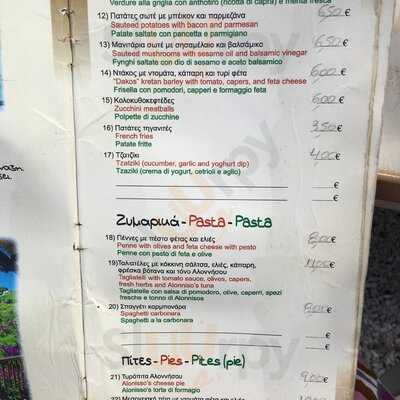 Verdure alla griglia con anthotiro (ricotta di capra) e menta fresca
12) Πατάτες σωτέ με μπέικον και παρμεζάνα 6,50 €
Sauteed potatoes with bacon and parmesan
Patate saltate con pancetta e parmigiano
13) Μανιτάρια σωτέ με σησαμέλαιο και βαλσάμικο 6,50 €
Sauteed mushrooms with sesame oil and balsamic vinegar
Fynghi saltate con dio di sesamo e aceto balsamico
14) Ντάκος με ντομάτα, κάπαρη και τυρί φέτα 6,00 €
"Dakos" kretan barley with tomato, capers, and feta cheese
Frisella con pomodoro, capperi e formaggio feta
15) Κολοκυθοκεφτέδες 6,00 €
Zucchini meatballs
Polpette di zucchine
16) Πατάτες τηγανιτές 3,50 €
French fries
Patate fritte
17) Τζατζίκι 4,00 €
Tzatziki (cucumber, garlic and yoghurt dip)
Tzaziki (crema di yogurt, cetrioli e aglio)
€
€
Ζυμαρικά - Pasta - Pasta
18) Πέννες με πέστο φέτας και ελιές 8,00 €
Penne with olives and feta cheese with pesto
Penne con pesto di feta e olive
19) Ταλιατέλες με κόκκινη σάλτσα, ελιές, κάπαρη, €
φρέσκα βότανα και τόνο Αλοννήσου
Tagliatelli with tomato sauce, olives, capers,
fresh herbs and Alonniso's tuna
Tagliatelle con salsa di pomodoro, olive, caperri, spezi
fresche e tonno di Alonnisos
20) Σπαγγέτι καρμπονάρα €
Spaghetti carbonara
Spaghetti a la carbonara
€
Πίτες - Pies - Pites (pie)
21) Τυρόπιτα Αλοννήσου 9,00 €
Alonisso's cheese pie
Alonisso's torta di formagio